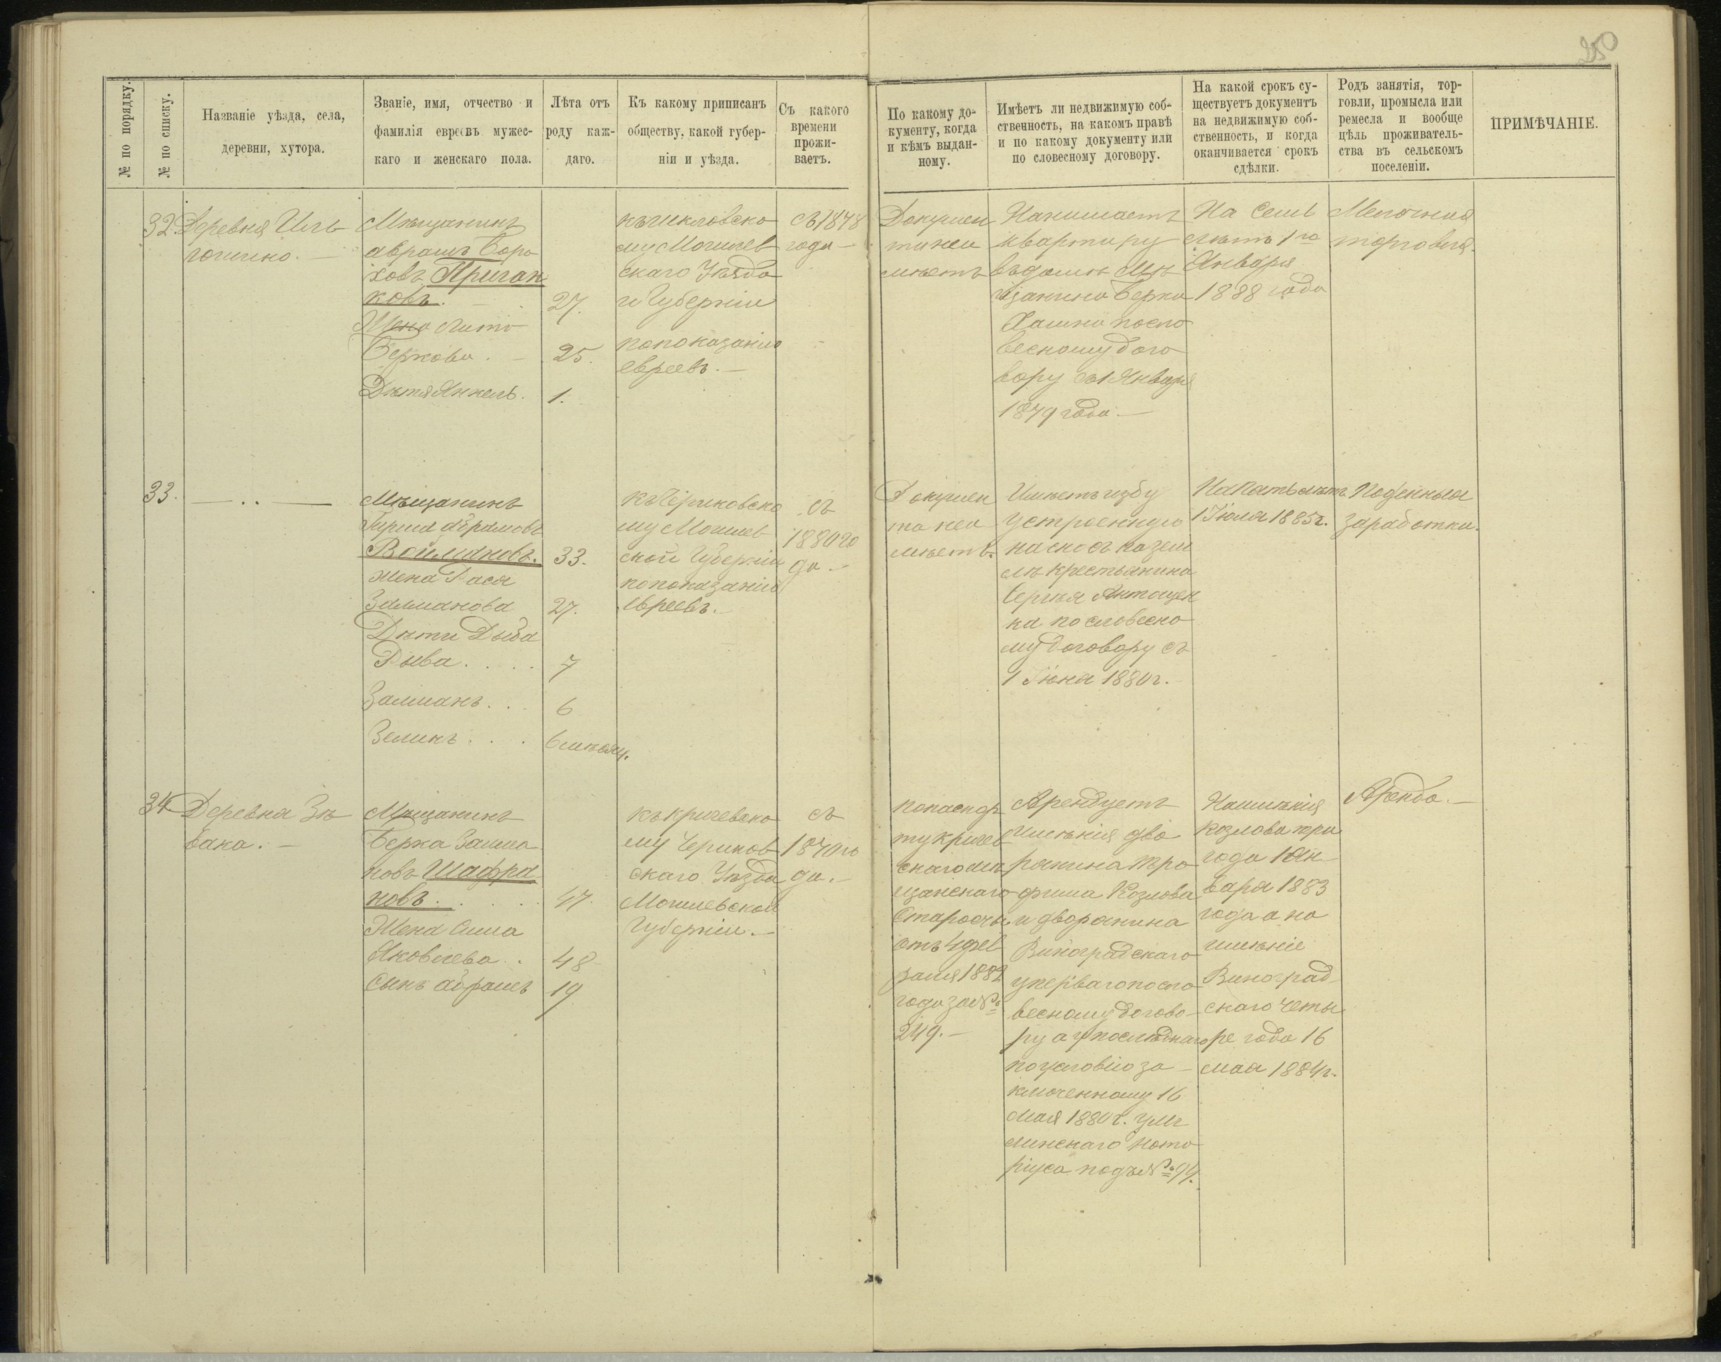 250
№ по порядку.
№ по списку.
Названіе уѣзда, села,
деревни, хутора.
Званіе, имя, отчество и
фамилія евреевъ мужес-
каго и женскаго пола.
Лѣта отъ
роду каж-
даго.
Къ какому приписанъ
обществу, какой губер-
ніи и уѣзда.
Съ какого
времени
прожи-
ваетъ.
По какому до-
кументу, когда
и кѣмъ выдан-
ному.
Имѣетъ ли недвижимую соб-
ственность, на какомъ правѣ
и по какому документу или
по словесному договору.
На какой срокъ су-
ществуетъ документъ
на недвижимую соб-
ственность, и когда
оканчивается срокъ
сдѣлки.
Родъ занятія, тор-
говли, промысла или
ремесла и вообще
цѣль проживатель-
ства въ сельскомъ
поселеніи.
ПРИМѢЧАНІЕ.
32
Деревня
Мѣщанинъ
Абрамъ Боро
ховъ
ковъ.
27.
Жена
Беркова.
25.
Дитя Янкель.
1.
му Могилев
скаго Уѣзда
и Губерніи
попоказанію
евреевъ.
съ 1878
года
Докумен
та неи
мѣетъ
Нанимаетъ
квартиру
въ домѣ Мѣ
щанина Берки
посло
весному дого
вору съ 1 Января
1879 года
На семь
лѣтъ 1го
Января
1888 года
Мелочная
торговля.
33.
Мѣщанинъ
Абрамовъ
33.
жена Рася
Залманова
27.
Дѣти Дыба
Рыва
7
Залманъ
6
Зеликъ
6 мѣсяц.
къ Чериковско
му Могилев
ской Губерніи
попоказанію
евреевъ.
съ
1880 го
да.
Докумен
та неи
мѣетъ.
Имѣетъ избу
устроенную
на зем
лѣ крестьянина
ка по словесно
му договору съ
1 Іюня 1880 г.
На пять лѣтъ
1 Іюля 1885 г.
Поденныя
заработки.
34
Деревня
Мѣщанинъ
Берка Залма
новъ Шафра
новъ
47.
Жена
Яковлева
48
Сынъ Абрамъ
19
къ Кричевско
му Чериков
скаго Уѣзда
Могилевской
Губерніи.
съ
1870 го
да.
попаспор
ту Кричев
скаго мѣ
щанскаго
Старосты
отъ 4 фев
раля 1882
года за №
249.
Арендуетъ
имѣнія дво
рянина Тро
фима Козлова
и дворянина
Виноградскаго
у перваго посло
весному догово
ру а у послѣдняго
по условію за
ключенному 16
мая 1880 г. у Мс
ниславскаго Нота
ріуса подъ №
На имѣнія
Козлова три
года 1 Ян
варя 1883
года а на
имѣніе
Виноград
скаго четы
ре года 16
мая 1884 г.
Аренда.